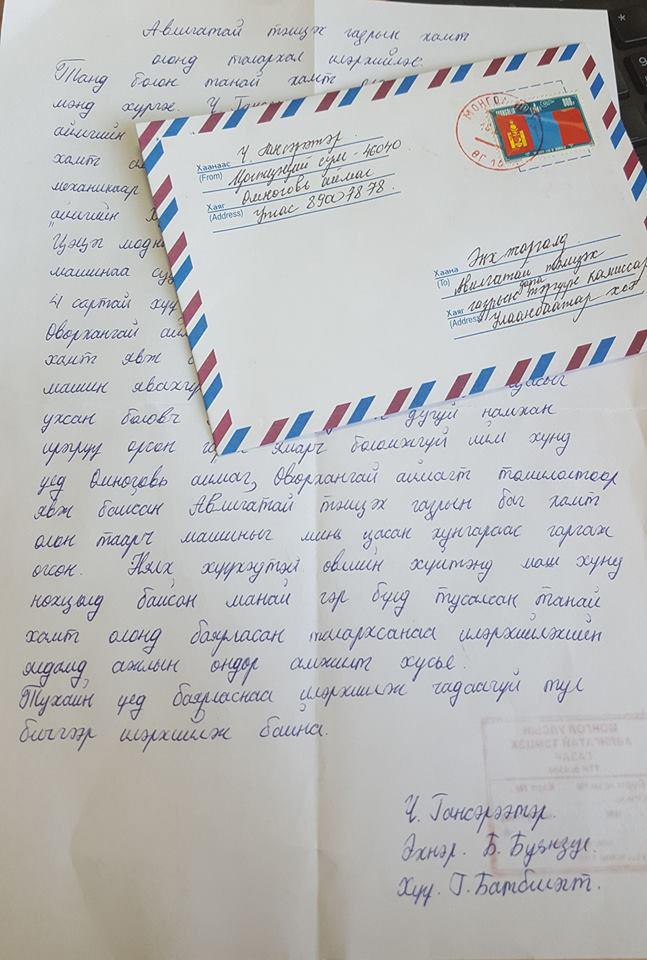 Авлигатай тэмцэх газрын хамт
олонд талархал илэрхийлэх
Танд болон танай хамт
мэнд хүргэе. Ч. Ганс
аймгийн
хамт
механикаар
аймгийн
Цэцэг
машинаа
4 сартай хүү
Өвөрхангай
хамт явж
машин явахгүй цасыг
ухсан боловч дугуй намхан
ямарч боломжгүй ийм хүнд
үед Өмнөговь аймаг, Өвөрхангай аймагт томилолтоор
явж байсан Авлигатай тэмцэх газрын баг хамт
олон таарч машиныг минь цасан хунгараас гаргаж
өгсөн. Нялх хүүхэдтэй өвлийн хүйтэнд маш хүнд
нөхцөлд байсан манай гэр бүлд тусалсан танай
хамт олонд баярласан талархсанаа илэрхийлэхийн
ялдамд ажлын өндөр амжилт хүсье.
Тухайн үед баярласнаа илэрхийлж чадаагүй тул
бичгээр илэрхийлж байна.
Ч. Гансэрээтэр.
Эхнэр. Б. Буянзул.
Хүү. Г. Батбилэгт.
МОНГОЛ
Хаанаас
(From)
Ч. Гансэрээтэр
Цогтцэций сум - 46040
Хаяг
(Address)
Өмнөговь аймаг
Утас 89007878.
Хаана
(To)
Энхжаргалд
Авилгатай тэмцэх
Хаяг
(Address)
газрын дарга тэргүүн комиссар
Улаанбаатар хот
МОНГОЛ УЛСЫН
АВЛИГАТАЙ ТЭМЦЭХ
ГАЗАР